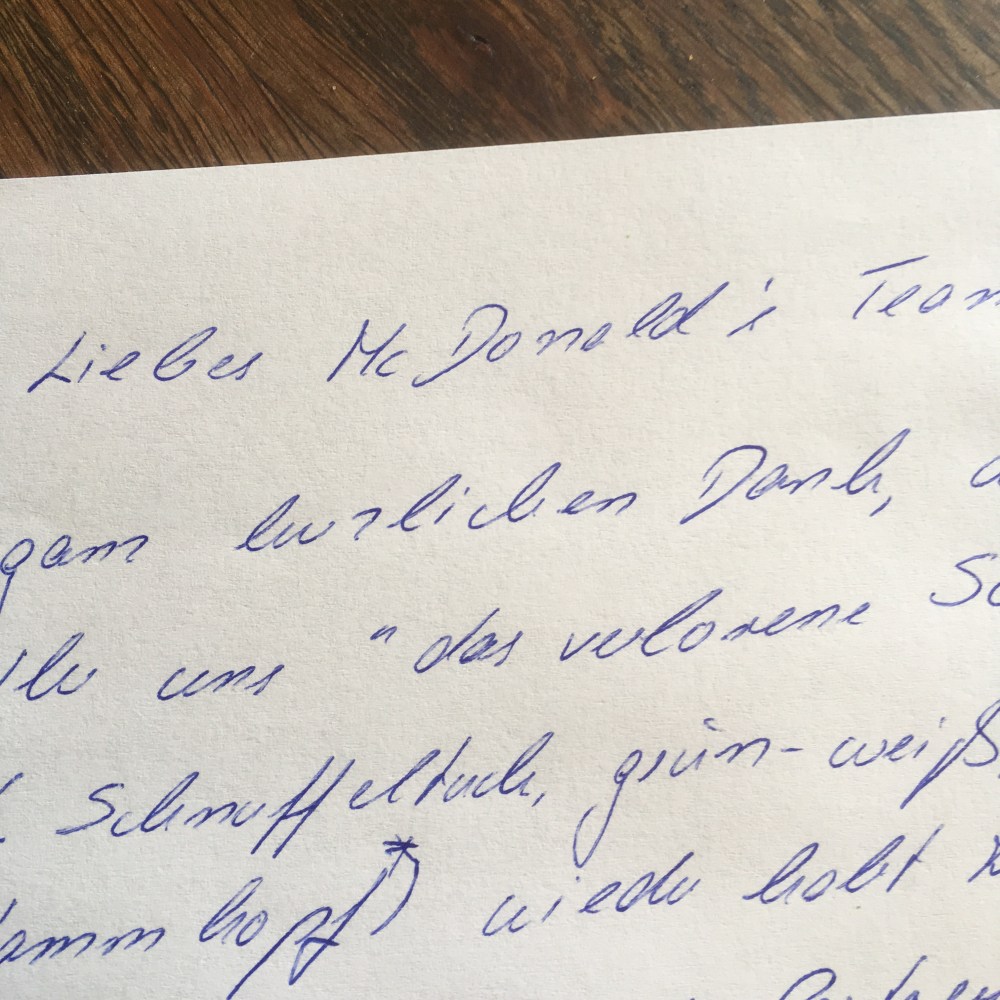 Liebes McDonald's Team
ganz herzlichen Dank,
Ihr uns "das verlorene
Schnuffeltuch, grün-weiß,
kopf*) wieder habt